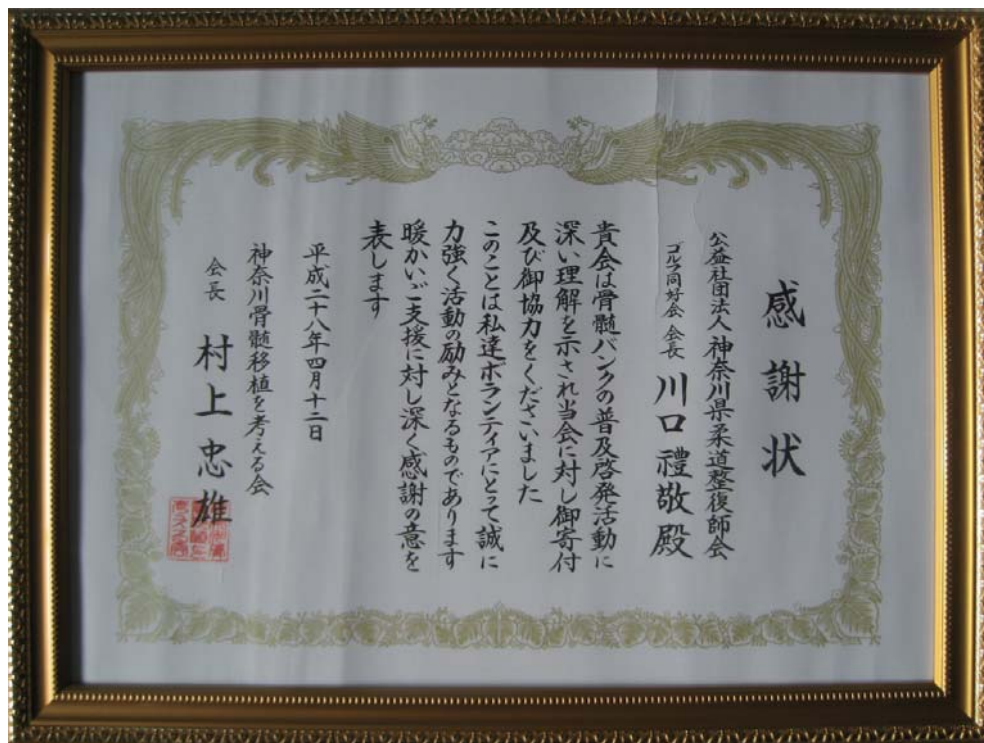 感謝状
公益社団法人神奈川県柔道整復師会
ゴルフ同好会 会長 川口禮敬殿
貴会は骨髄バンクの普及啓発活動に
深い理解を示され当会に対し御寄付
及び御協力をくださいました
このことは私達ボランティアにとって誠に
力強く活動の励みとなるものであります
暖かいご支援に対し深く感謝の意を
表します
平成二十八年四月十二日
神奈川骨髄移植を考える会
会長 村上忠雄